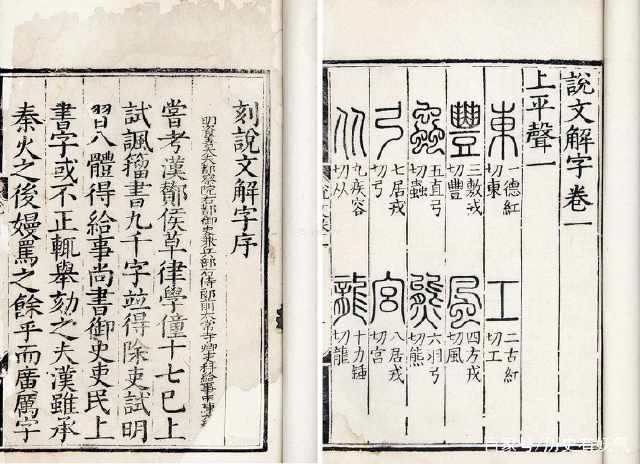 刻說文解字序
都察院右都御史兼兵部右侍郎前太常寺卿吏科給事中
嘗考漢酇侯草律學僮十七巳上
試諷籒書九千字並得除吏試明
習八體得給事尚書御史吏民上
書字或不正輒舉劾之夫漢雖承
秦火之後嫚罵之餘乎而廣厲字
說文解字卷一
上平聲一
東 一德紅切東
工 二古紅切工
豐 三敷戎切豐
風 四方戎切風
蟲 五直弓切蟲
熊 六羽弓切熊
弓 七居戎切弓
宮 八居戎切宮
从 九疾容切从
龍 十力鍾切龍
百家号/历史有